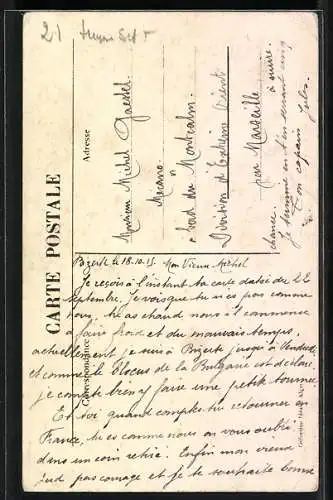 21
CARTE POSTALE
Correspondance
Adresse
Monsieur Michel Gaessel
Mécano
à bord du Montcalm
Division d'Extrême Orient
par Marseille
à suivre.
Bizerte le 18.10.15. Mon Vieux Michel
Je reçois à l'instant ta carte datée du 12
septembre. Je vois que tu n'es pas comme
nous, tu as chaud nous il commence
à faire froid et du mauvais temps,
actuellement je suis à Bizerte jusqu'à Vendredi
et comme le Blocus de la Bulgarie est déclaré,
je compte bien y faire une petite tournée
Et toi quand comptes tu retourner en
France, tu es comme nous on vous oublie
dans un coin retiré. Enfin mon vieux
Jud pas courage et je te souhaite bonne
chance.
Je termine en t'en serrant cinq
Ton copain Jules.